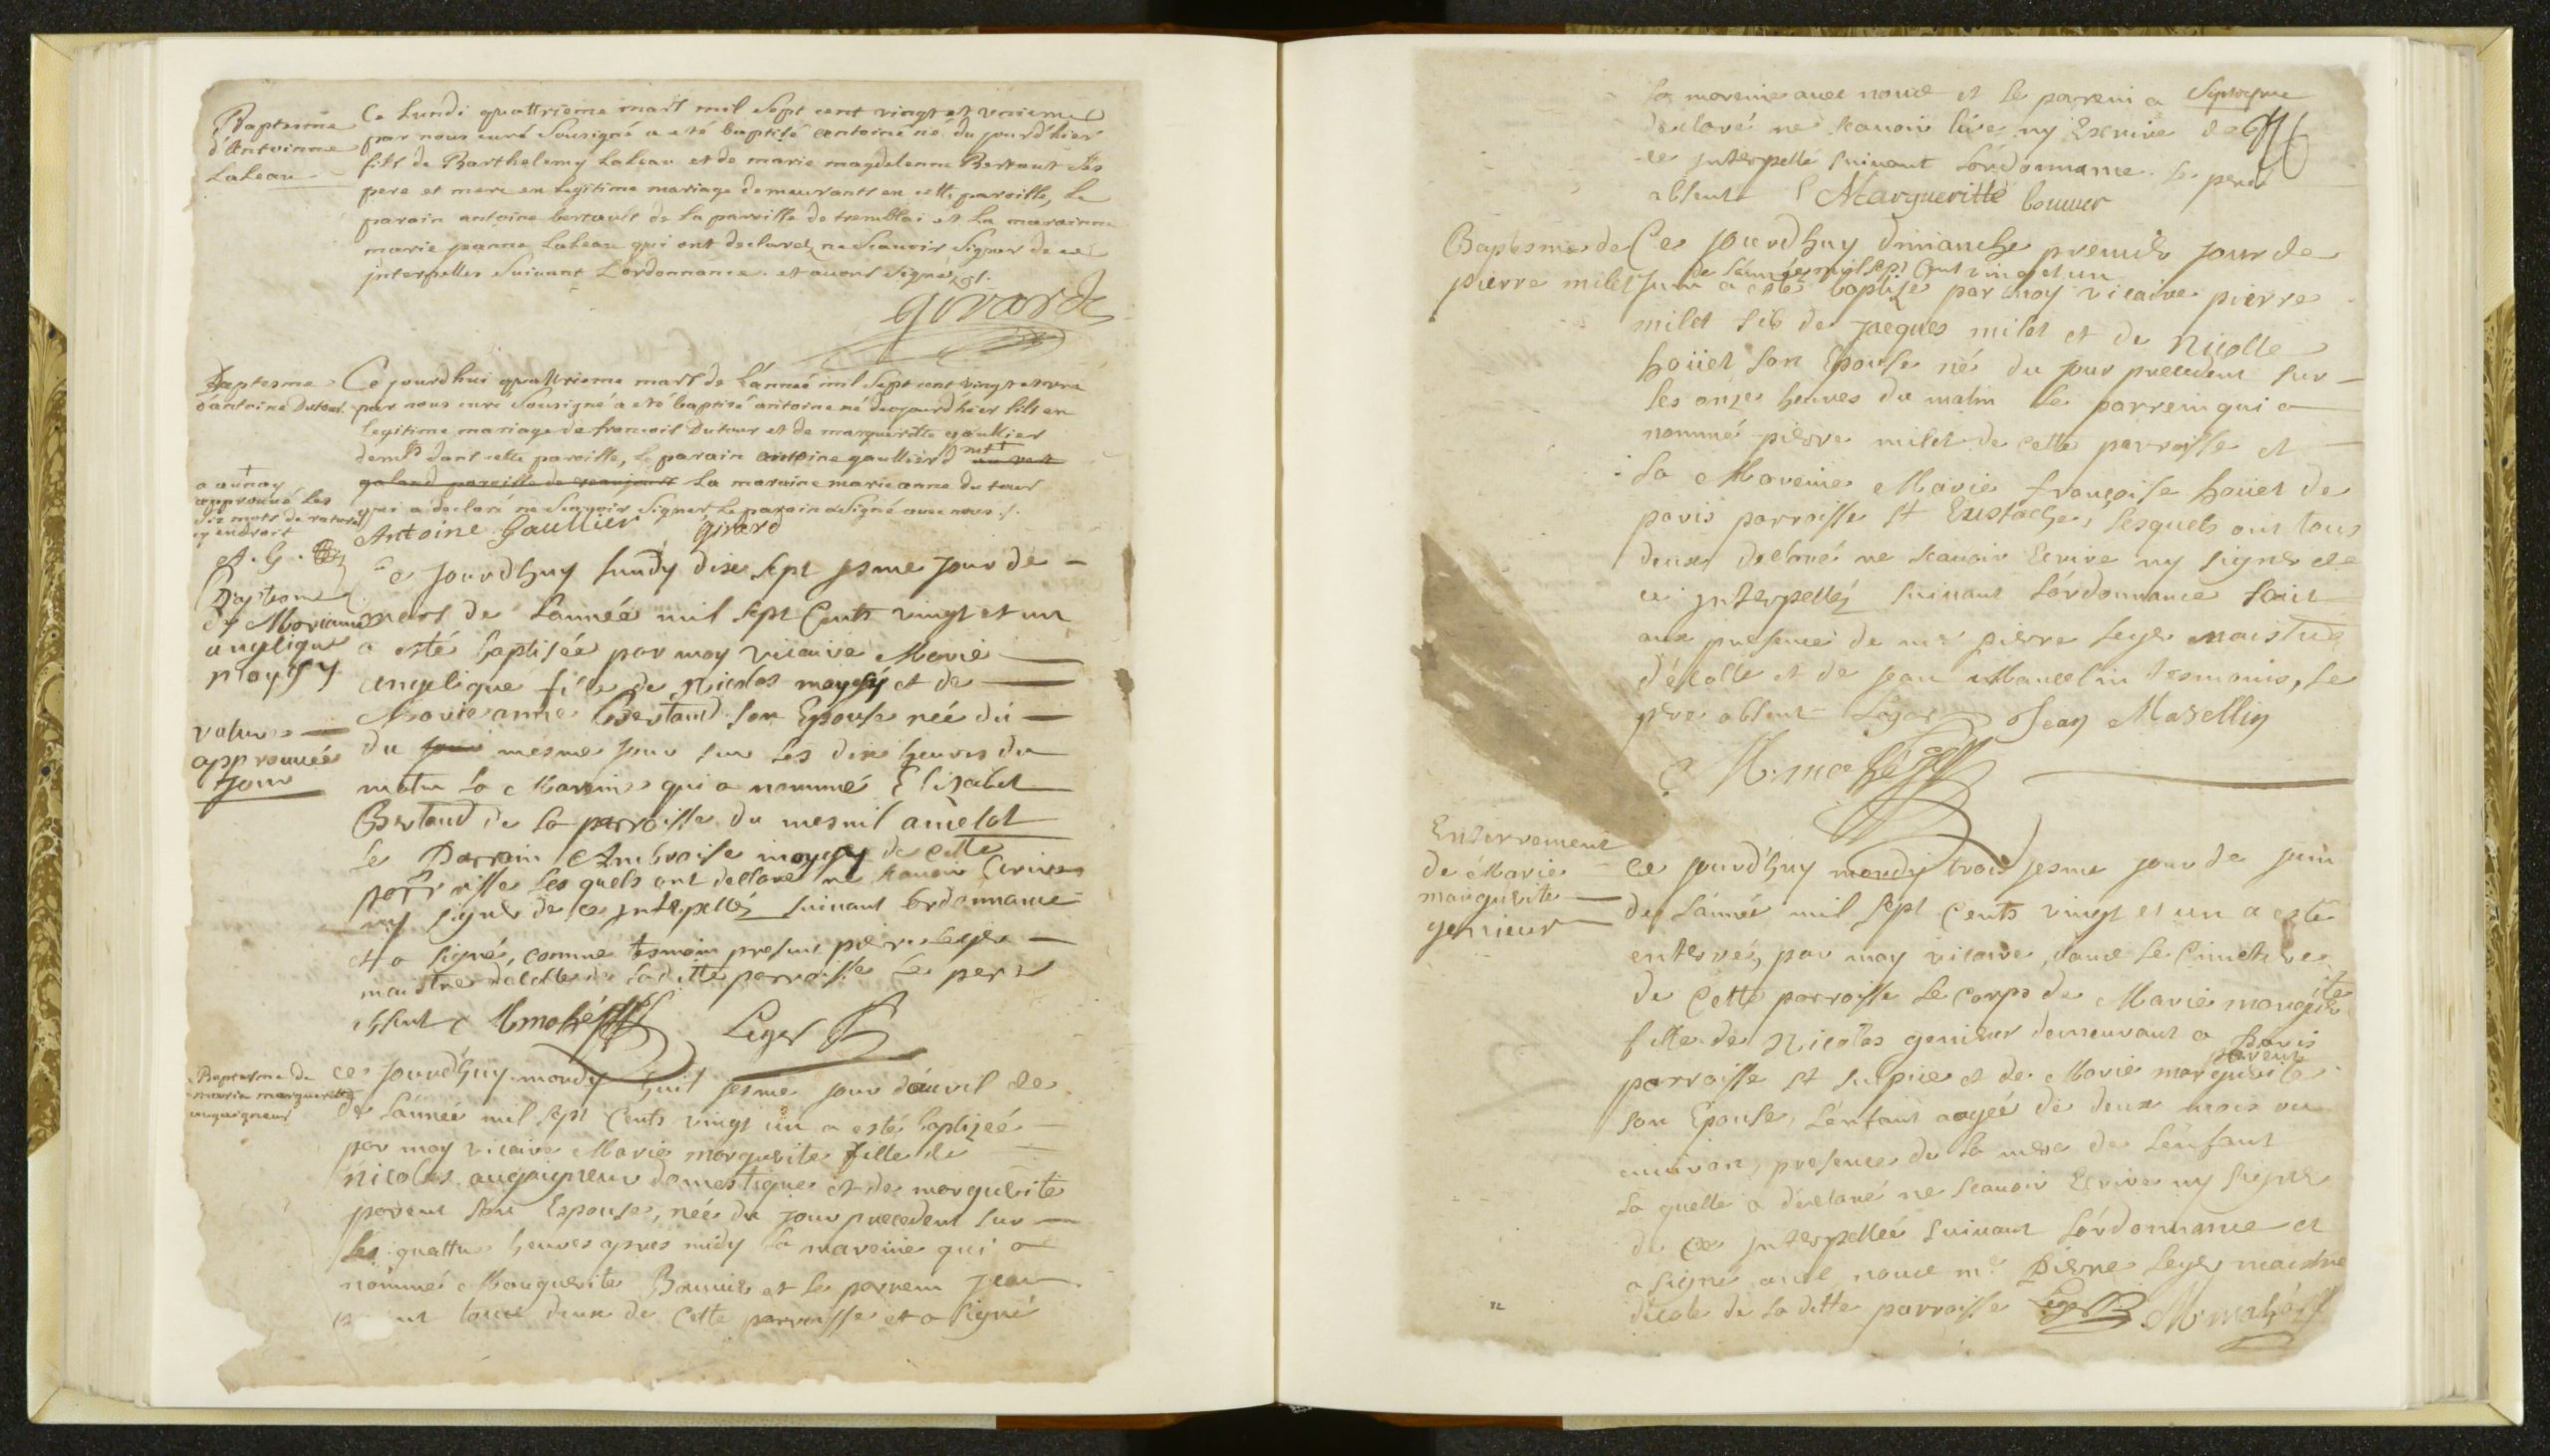 Baptesme
d'Antoinne
Laleau
Ce Lundi quattrieme mars mil sept cent vingt et unieme
par nous curé Sousigné a eté baptisé antoine né du jourd'hier
fils de Barthelemy Laleau et de marie magdelenne Bertaut ses
pere et mere en legitime mariage demeurants en cette paroisse, le
parain antoine bertault de la paroisse de tremblai et la marainne
marie jeanne Laleau qui ont declarez ne Scauoir Signer de ce
interpellez Suivant L'ordonnance. et auons signé
girard
Baptesme
d'antoine Dutour.
Ce jourd'hui quattrieme mars de L'anneé mil Sept cent vingt et un
par nous curé Sousigné a eté baptisé antoine né du jourd'hier fils en
legitime mariage de francois Dutour et de margueritte gaultier
dem.ts dans cette paroisse, le parain antoine gaultier
galand paroisse de la maraine marie anne du tour
qui a declaré ne Scavoir Signer, le parain a Signé avec nous ./.
a aunay
approuué les
dix mots de rature
cy endroit
A. G.
Antoine Gaultier girard
Baptesme
de Marianne
angelique
moysy
Ce jourdhuy lundy dixe sept jesme jour de
mars de l'anneé mil sept Cents vingt et un
a esté baptiseé par moy vicaire Marie
angelique fille de Nicolas moysy et de
Marie anne Bertaud son Epouse neé du
du jour mesme jour sur les dix heures du
matin la Mareine qui a nommé Elizabet
Bertaud de la parroisse du mesnil amelot
le Parrain Ambroise moysy de cette
parroisse lesquels ont declaré ne scauoir Ecrire
ny signer de ce interpellez suiuant l'ordonnance
et a signé, comme tesmoin present pierre leger
maistre d'ecolle de laditte parroisse le pere
absent Leger
rature
approuueé
jour
Baptesme de
marie margueritte
augaigneur
ce jourd'huy mardy huit jesme jour d'auril de
de l'anneé mil sept Cents vingt un a esté baptizeé
par moy vicaire Marie marguerite fille de
nicolas augaigneur domestique et de marguerite
parent son Epouse, neé du jour precedent sur
les quattre heures apres midy la mareine qui a
nommé Marguerite Bouuier et le parrein Jean
tous deux de cette parroisse et a signé
la mareine auec nous et le parrein a
declaré ne scauoir lire ny Escrire de
ce interpellé suiuant l'ordonnance. le pere
absent Margueritte bouuier
Baptesme de
pierre milet
Ces jourdhuy dimanche premier jour de
de l'anneé mil sept Cent vingt et un
juin a esté baptisé par moy vicaire pierre
milet fils de jacques milet et de Nicolle
hoüet son Epouse né du jour precedent sur
les onzes heures du matin le parrein qui a
nommé pierre milet de cette parroisse et
la Mareine Marie françoise hoüet de
paris parroisse st Eustache, lesquels ont tous
deux declaré ne scauoir Ecrire ny signer de
ce interpellez suiuant l'ordonnance fait
aux presence de me pierre leger maistre
d'ecolle et de jean Marcelin tesmoins, le
pere absent Leger Jean Marellin
Enterrement
de Marie
marguerite
genieur
Ce jourd'huy mardy trois jesme jour de juin
de l'anneé mil sept Cents vingt et un a esté
enterré, par moy vicaire, dans le Cimetiere
de cette parroisse le corps de Marie marguerite
fille de Nicolas genieur demeurant a Paris
parroisse st sulpice et de Marie marguerite parent
son Epouse, l'enfant ageé de deux mois ou
enuiron, presence de la mere de l'enfant
la quelle a declaré ne scauoir Ecrire ny signer
de ce interpelleé suiuant l'ordonnance et
a signé auec nous me Pierre leger maistre
d'ecole de la ditte parroisse Leger